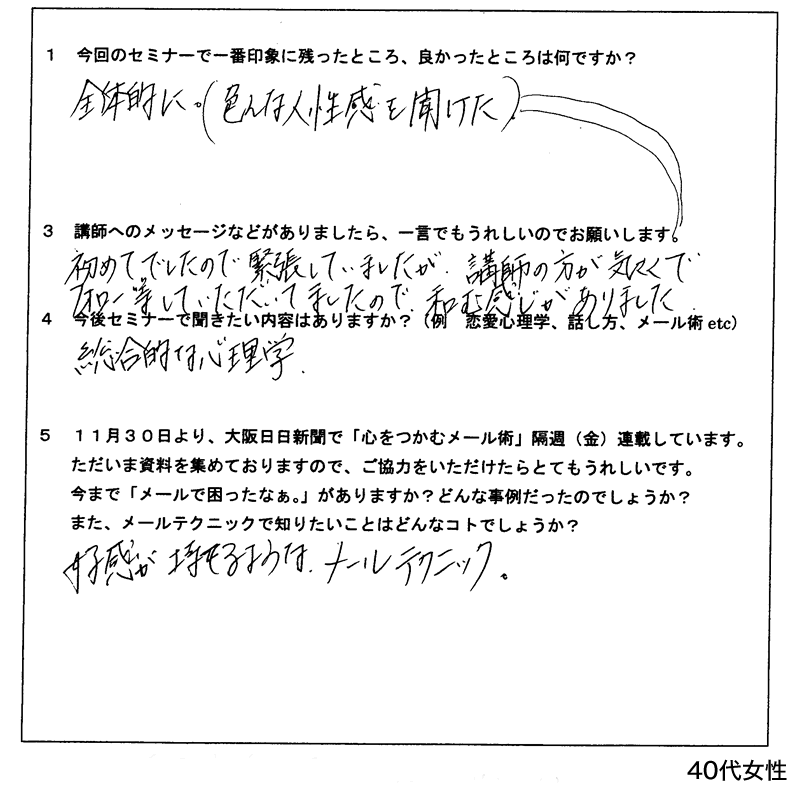 1 今回のセミナーで一番印象に残ったところ、良かったところは何ですか？
全体的に。(色んな人性感を聞けた)
3 講師へのメッセージなどがありましたら、一言でもうれしいのでお願いします。
初めてでしたので緊張していましたが、講師の方が気さくで
していただいてましたので、和む感じがありました
4 今後セミナーで聞きたい内容はありますか？（例 恋愛心理学、話し方、メール術etc）
総合的な心理学.
5 11月30日より、大阪日日新聞で「心をつかむメール術」隔週（金）連載しています。
ただいま資料を集めておりますので、ご協力をいただけたらとてもうれしいです。
今まで「メールで困ったなぁ。」がありますか？どんな事例だったのでしょうか？
また、メールテクニックで知りたいことはどんなコトでしょうか？
好感が持てるような、メールテクニック。
40代女性